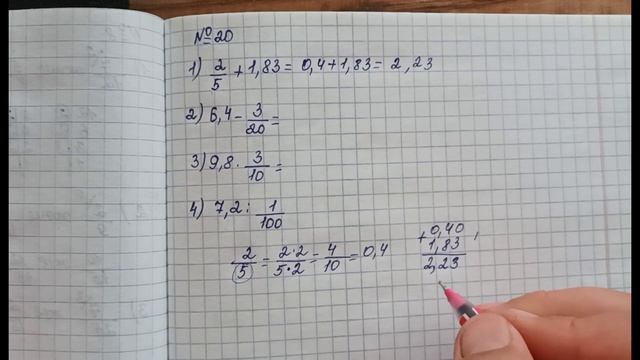 №20
1) 2/5 + 1,83 = 0,4 + 1,83 = 2,23
2) 6,4 - 3/20 =
3) 9,8 · 3/10 =
4) 7,2 : 1/100
2/5 = 2·2/5·2 = 4/10 = 0,4
+ 0,40
1,83
2,23